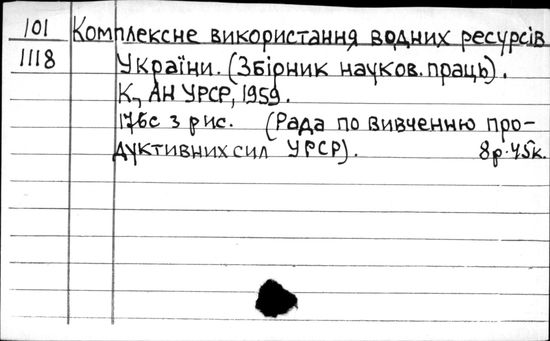 101 Комплексне використання водних ресурсів
1118 України. (Збірник науков. праць).
К., АН УРСР, 1959.
176с з рис. (Рада по вивченню про-
дуктивних сил УРСР). 8р.45к.